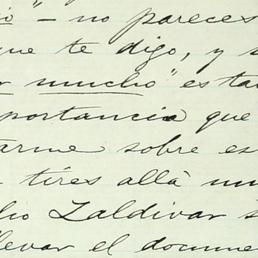 io" - no pareces
que te digo, y s
r mucho" estar
portancia que
tarme sobre es
tires allá mu
lio Zaldivar s
llevar el docume